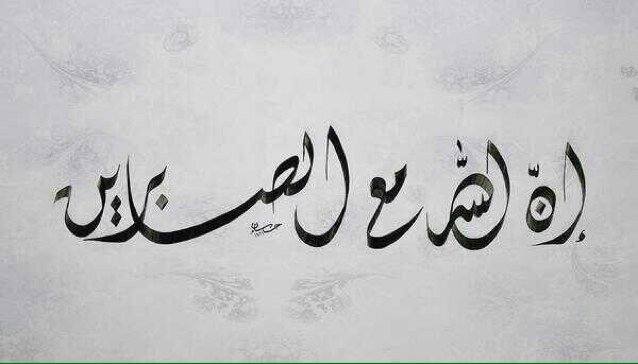 إنّ الله مع الصابرين